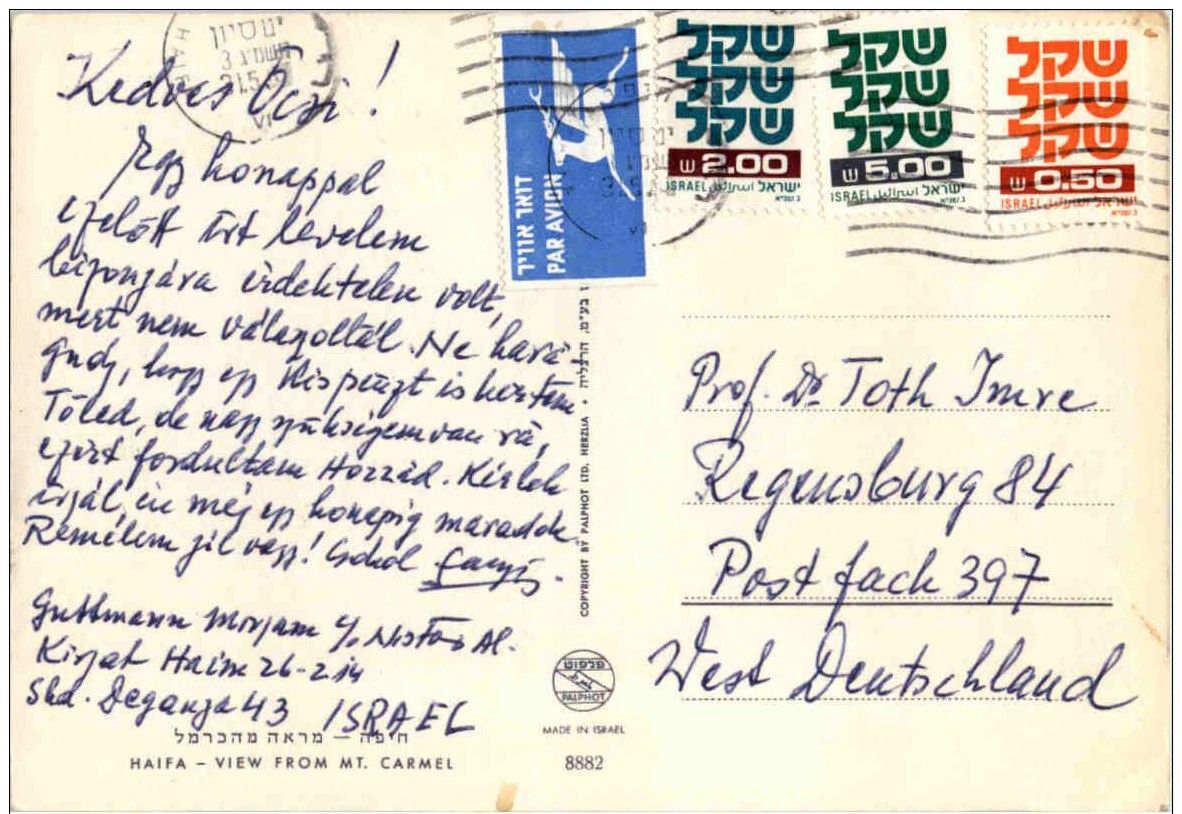 Kedves Öcsi!
Egy honappal
ezelőtt írt levelem
bizonyára érdektelen volt,
mert nem válaszoltál. Ne hara-
gudj, hogy egy kis pénzt is kértem
Tőled, de nagy szükségem van rá,
ezért fordultam Hozzád. Kérlek
írjál, én még egy honapig maradok.
Remélem jól vagy! Csokol
Guttmann Morjam c/o Al.
Kirjat Haim 26-2-14
Shd. Deganja 43 ISRAEL
חיפה – מראה מהכרמל
HAIFA – VIEW FROM MT. CARMEL
HAIFA
יט סיון
דואר אוויר
PAR AVION
שקל
שקל
שקל
ש 2.00
ISRAEL اسرائيل ישראל
שקל
שקל
שקל
ש 5.00
ISRAEL اسرائيل ישראל
שקל
שקל
שקל
ש 0.50
ISRAEL اسرائيل ישראל
COPYRIGHT BY PALPHOT LTD. HERZLIA • בע"מ, הרצליה
פלפוט
PALPHOT
MADE IN ISRAEL
8882
Prof. Dr Toth Imre
Regensburg 84
Postfach 397
West Deutschland